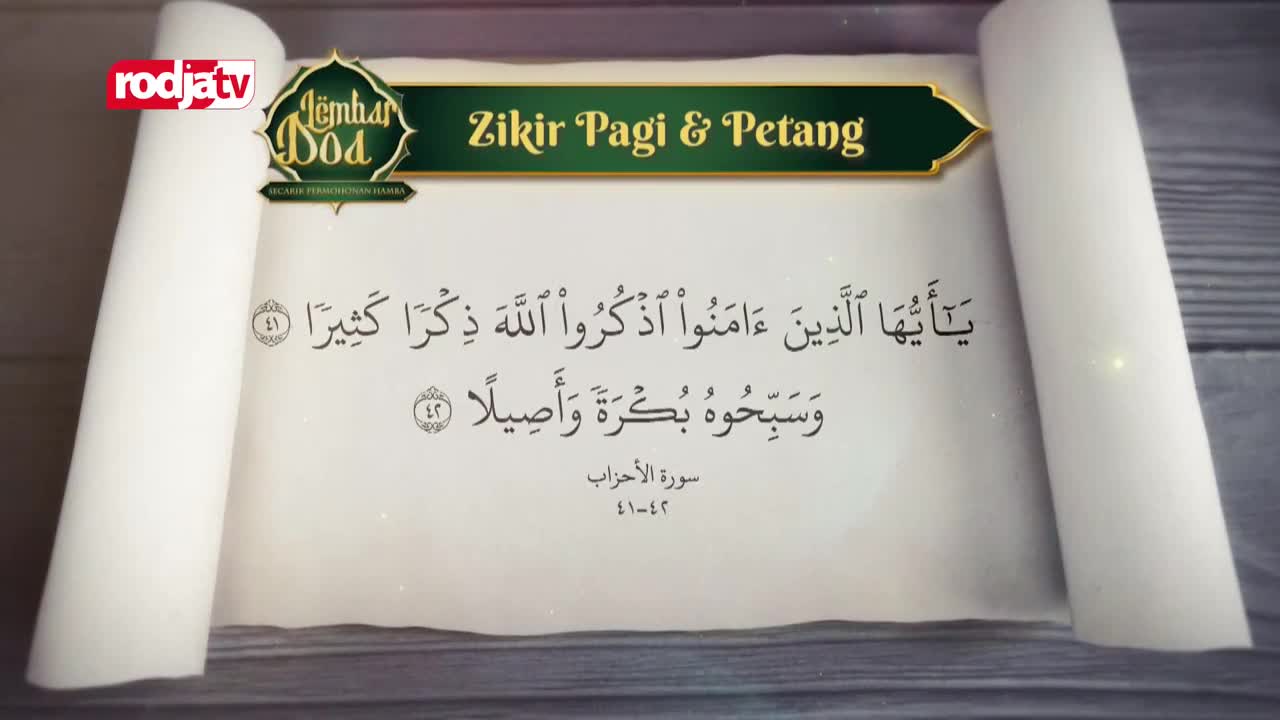 rodjatv
Lembar
Doa
SECARIK PERMOHONAN HAMBA
Zikir Pagi & Petang
يَـٰٓأَيُّهَا ٱلَّذِينَ ءَامَنُوا۟ ٱذْكُرُوا۟ ٱللَّهَ ذِكْرًا كَثِيرًا ٤١
وَسَبِّحُوهُ بُكْرَةً وَأَصِيلًا ٤٢
سورة الأحزاب
٤١-٤٢